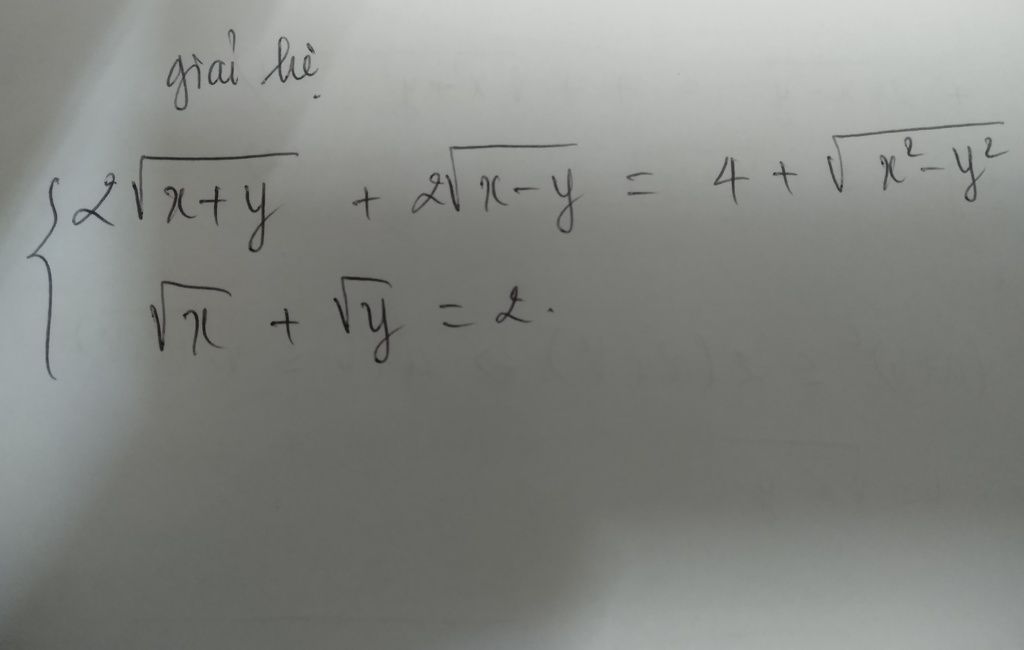 giải hệ
2√(x+y) + 2√(x-y) = 4 + √(x²-y²)
√x + √y = 2.